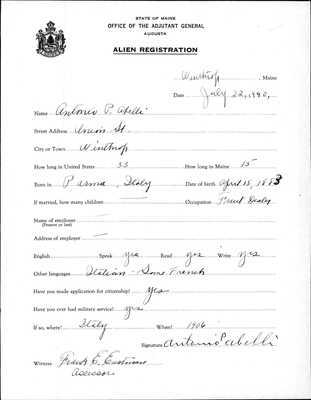 STATE OF MAINE
OFFICE OF THE ADJUTANT GENERAL
AUGUSTA
ALIEN REGISTRATION
Winthrop, Maine
Date July 22, 1940,
Name Antonio P. Abelli
Street Address Union St.
City or Town Winthrop
How long in United States 33 How long in Maine 15
Born in Parma, Italy Date of birth April 18, 1883
If married, how many children — Occupation Fruit Dealer
Name of employer —
(Present or last)
Address of employer —
English Speak yes Read yes Write yes
Other languages Italian - Some French
Have you made application for citizenship? Yes
Have you ever had military service? yes
If so, where? Italy When? 1904
Signature Antonio P Abelli
Witness Frank E.
Assessor